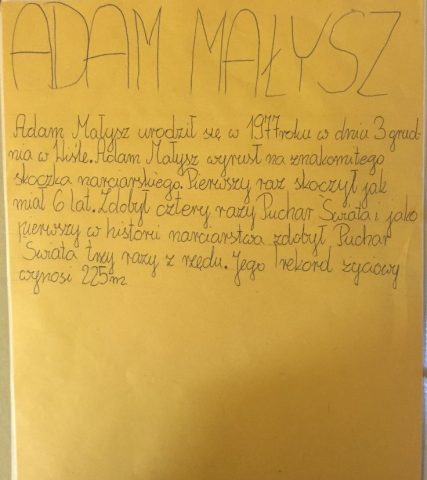 ADAM MAŁYSZ
Adam Małysz urodził się w 1977 roku w dnia 3 grud-
nia w Wiśle. Adam Małysz wyrusł na znakomitego
skoczka narciarskiego. Pierwszy raz skoczył jak
miał 6 lat. Zdobył cztery razy Puchar Świata i jako
pierwszy w histori narciarstwa zdobył Puchar
Świata trzy razy z rzędu. Jego rekord życiowy
wynosi 225m